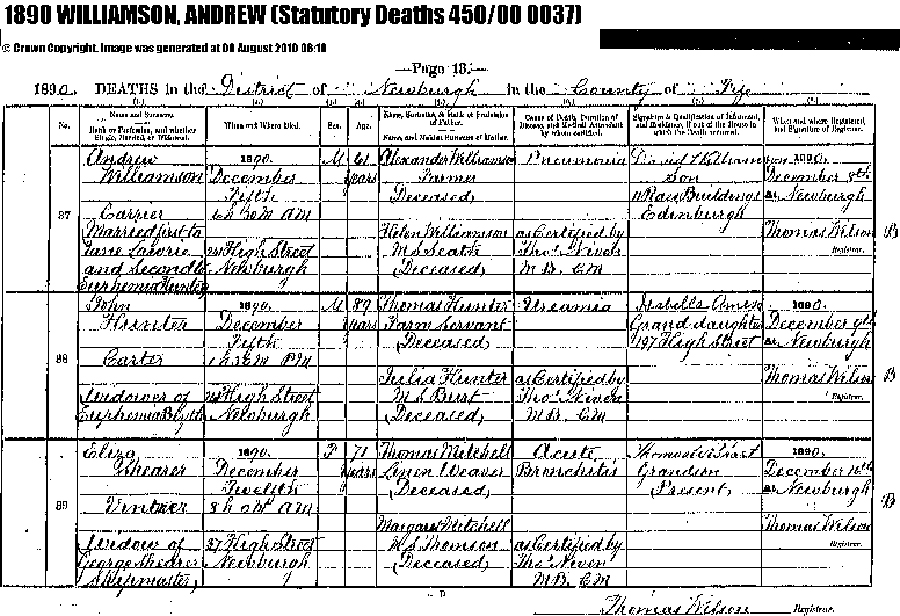 1890 WILLIAMSON, ANDREW (Statutory Deaths 450/00 0037)
© Crown Copyright. Image was generated at 08 August 2010 06:10
Page 13.
1890. DEATHS in the District of Newburgh in the County of Fife
No.
Name and Surname.
Rank or Profession, and whether Single, Married, or Widowed.
When and Where Died.
Sex.
Age.
Name, Surname, & Rank or Profession of Father.
Name, and Maiden Surname of Mother.
Cause of Death, Duration of Disease, and Medical Attendant by whom certified.
Signature & Qualification of Informant, and Residence, if out of the House in which the Death occurred.
When and where Registered, and Signature of Registrar.
37
Andrew
Williamson
Carrier
Married first to
Jane Lawrie
and Secondly
Euphemia Hunter
1890.
December
Fifth
High Street
Newburgh
M
61
years
Alexander Williamson
Farmer
(Deceased)
Helen Williamson
M.S. Seath
(Deceased)
Pneumonia
as Certified by
Thos. Niven
M.B. C.M
David Williamson
Son
Buildings
Edinburgh
1890.
December 8th
at Newburgh
Thomas Wilson
Registrar.
38
John
Hunter
Carter
Widower of
Euphemia Blyth
1890.
December
Fifth
High Street
Newburgh
M
years
Thomas Hunter
Farm Servant
(Deceased)
Hunter
M.S.
(Deceased)
Uraemia
as Certified by
Thos. Niven
M.B. C.M
Isabella
Grand daughter
197 High Street
1890.
December 9th
at Newburgh
Thomas Wilson
Registrar.
39
Eliza
Shearer
Vintner
Widow of
George Shearer
Shipmaster
1890.
December
Twelfth
37 High Street
Newburgh
F
71
years
Thomas Mitchell
Linen Weaver
(Deceased)
Margaret Mitchell
M.S. Thomson
(Deceased)
Acute
Bronchitis
as Certified by
Thos. Niven
M.B. C.M
Grandson
Present
1890.
December
at Newburgh
Thomas Wilson
Registrar.
Thomas Wilson Registrar.